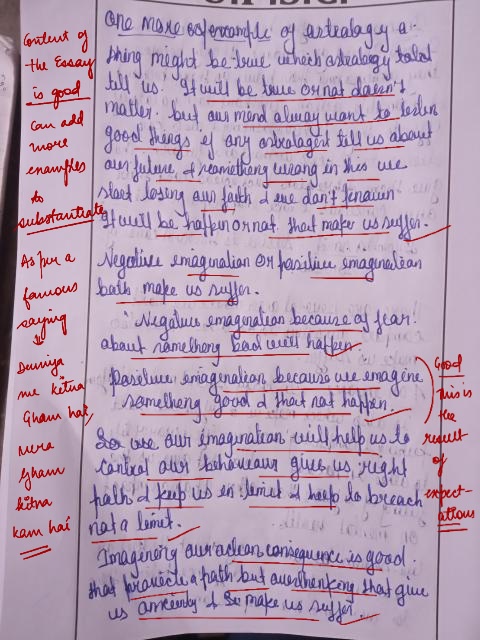 Content of
the Essay
is good
Can add
more
examples
to
substantiate
As per a
famous
saying
Duniya
me kitna
Gham hai,
mera
Gham
kitna
kam hai
One more example of astrology a
thing might be true which astrology told
tell us. It will be true or not doesn't
matter. but our mind alway want to listen
good things if any astrologist tell us about
our future, & something wrong in this we
start losing our faith & we don't
It will be happen or not. that make us suffer.
Negative emagination or positive emagination
both make us suffer.
Negative emagination because of fear
about something bad will happen
Positive emagination because we emagine
something good & that not happen.
So use our emagination will help us to
control our behaviour gives us right
path & keep us in limit & help to breach
not a limit.
Imagining our action consequence is good.
that provide a path but overthenking that give
us anxiety & make us suffer.
Good
This is
the
result
of
expect-
ations